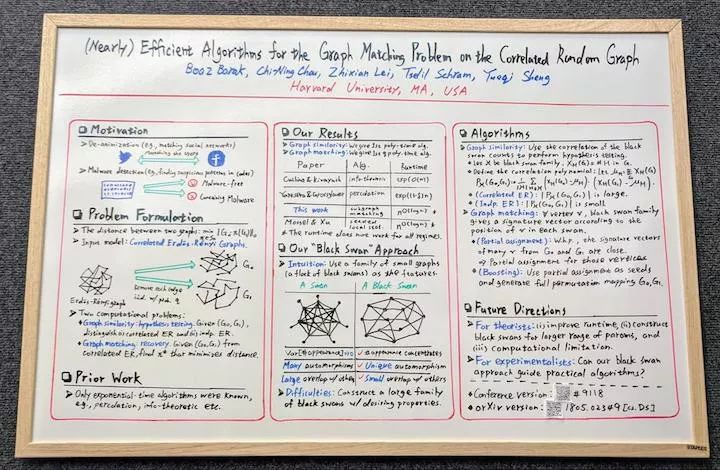 (Nearly) Efficient Algorithms for the Graph Matching Problem on the Correlated Random Graph
Boaz Barak, Chi-Ning Chou, Zhixian Lei, Tselil Schramm, Yueqi Sheng
Harvard University, MA, USA
Motivation
De-anonimization (e.g., matching social networks)
Matching the users
Malware detection (e.g., finding suspicious patterns in codes)
Malware-free
Containing Malware
Problem Formulation
The distance between two graph: min ‖G₀-π(G₁)‖₀
Input model: Correlated Erdős-Rényi Graphs.
G₀
remove each edge
i.i.d. w/ prob.
Erdős-Rényi graph
G₁
Two computational problems:
Graph similarity: hypothesis testing. Given (G₀,G₁), distinguish correlated ER and indep. ER.
Graph matching: recovery. Given (G₀,G₁) from correlated ER, find π* that minimizes distance.
Prior Work
Only exponential-time algorithms were known, e.g., percolation, info-theoretic etc.
Our Results
Graph similarity: We give 1st poly-time alg.
Graph matching: We give 1st poly-time alg.
Paper Alg. Runtime
Cullina & Kiyavash info-theoretic
Yartseva & Grossglauser percolation
This work subgraph matching
Mossel & Xu seeded local stat.
The runtime does not work for all regimes.
Our "Black Swan" Approach
Intuition: Use a family of small graphs (a flock of black swans) as the features.
A Swan A Black Swan
# appearance concentrates
Many automorphism Unique automorphism
Large overlap w/ others Small overlap w/ others
Difficulties: Construct a large family of black swans w/ desiring properties.
Algorithms
Graph similarity: Use the correlation of the black swan counts to perform hypothesis testing.
Let H be black swan family,
Define the correlation polynomial:
(Correlated ER): |Pₕ(G₀,G₁)| is large.
(Indp. ER): |Pₕ(G₀,G₁)| is small.
Graph matching: ∀ vertex v, black swan family gives a signature vector according to the position of v in each swan.
(Partial assignment): W.h.p., the signature vectors of many v from G₀ and G₁ are close.
⇒ Partial assignment for those vertices
(Boosting): Use partial assignment as seeds and generate full permutation mapping G₀,G₁.
Future Directions
For theorists: (i) improve runtime, (ii) construct black swans for larger range of params, and (iii) computational limitation.
For experimentalists: Can our black swan approach guide practical algorithms?
Conference version: #9118
arXiv version: 1805.02349 [cs.DS]
STAPLES